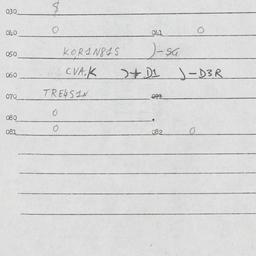 030 $
040 0 041 0
050 KOR1N81S )-SG
060 CVA.K )+D1 )-D3R
070 TRE4S1N
080 0
081 0 082 0